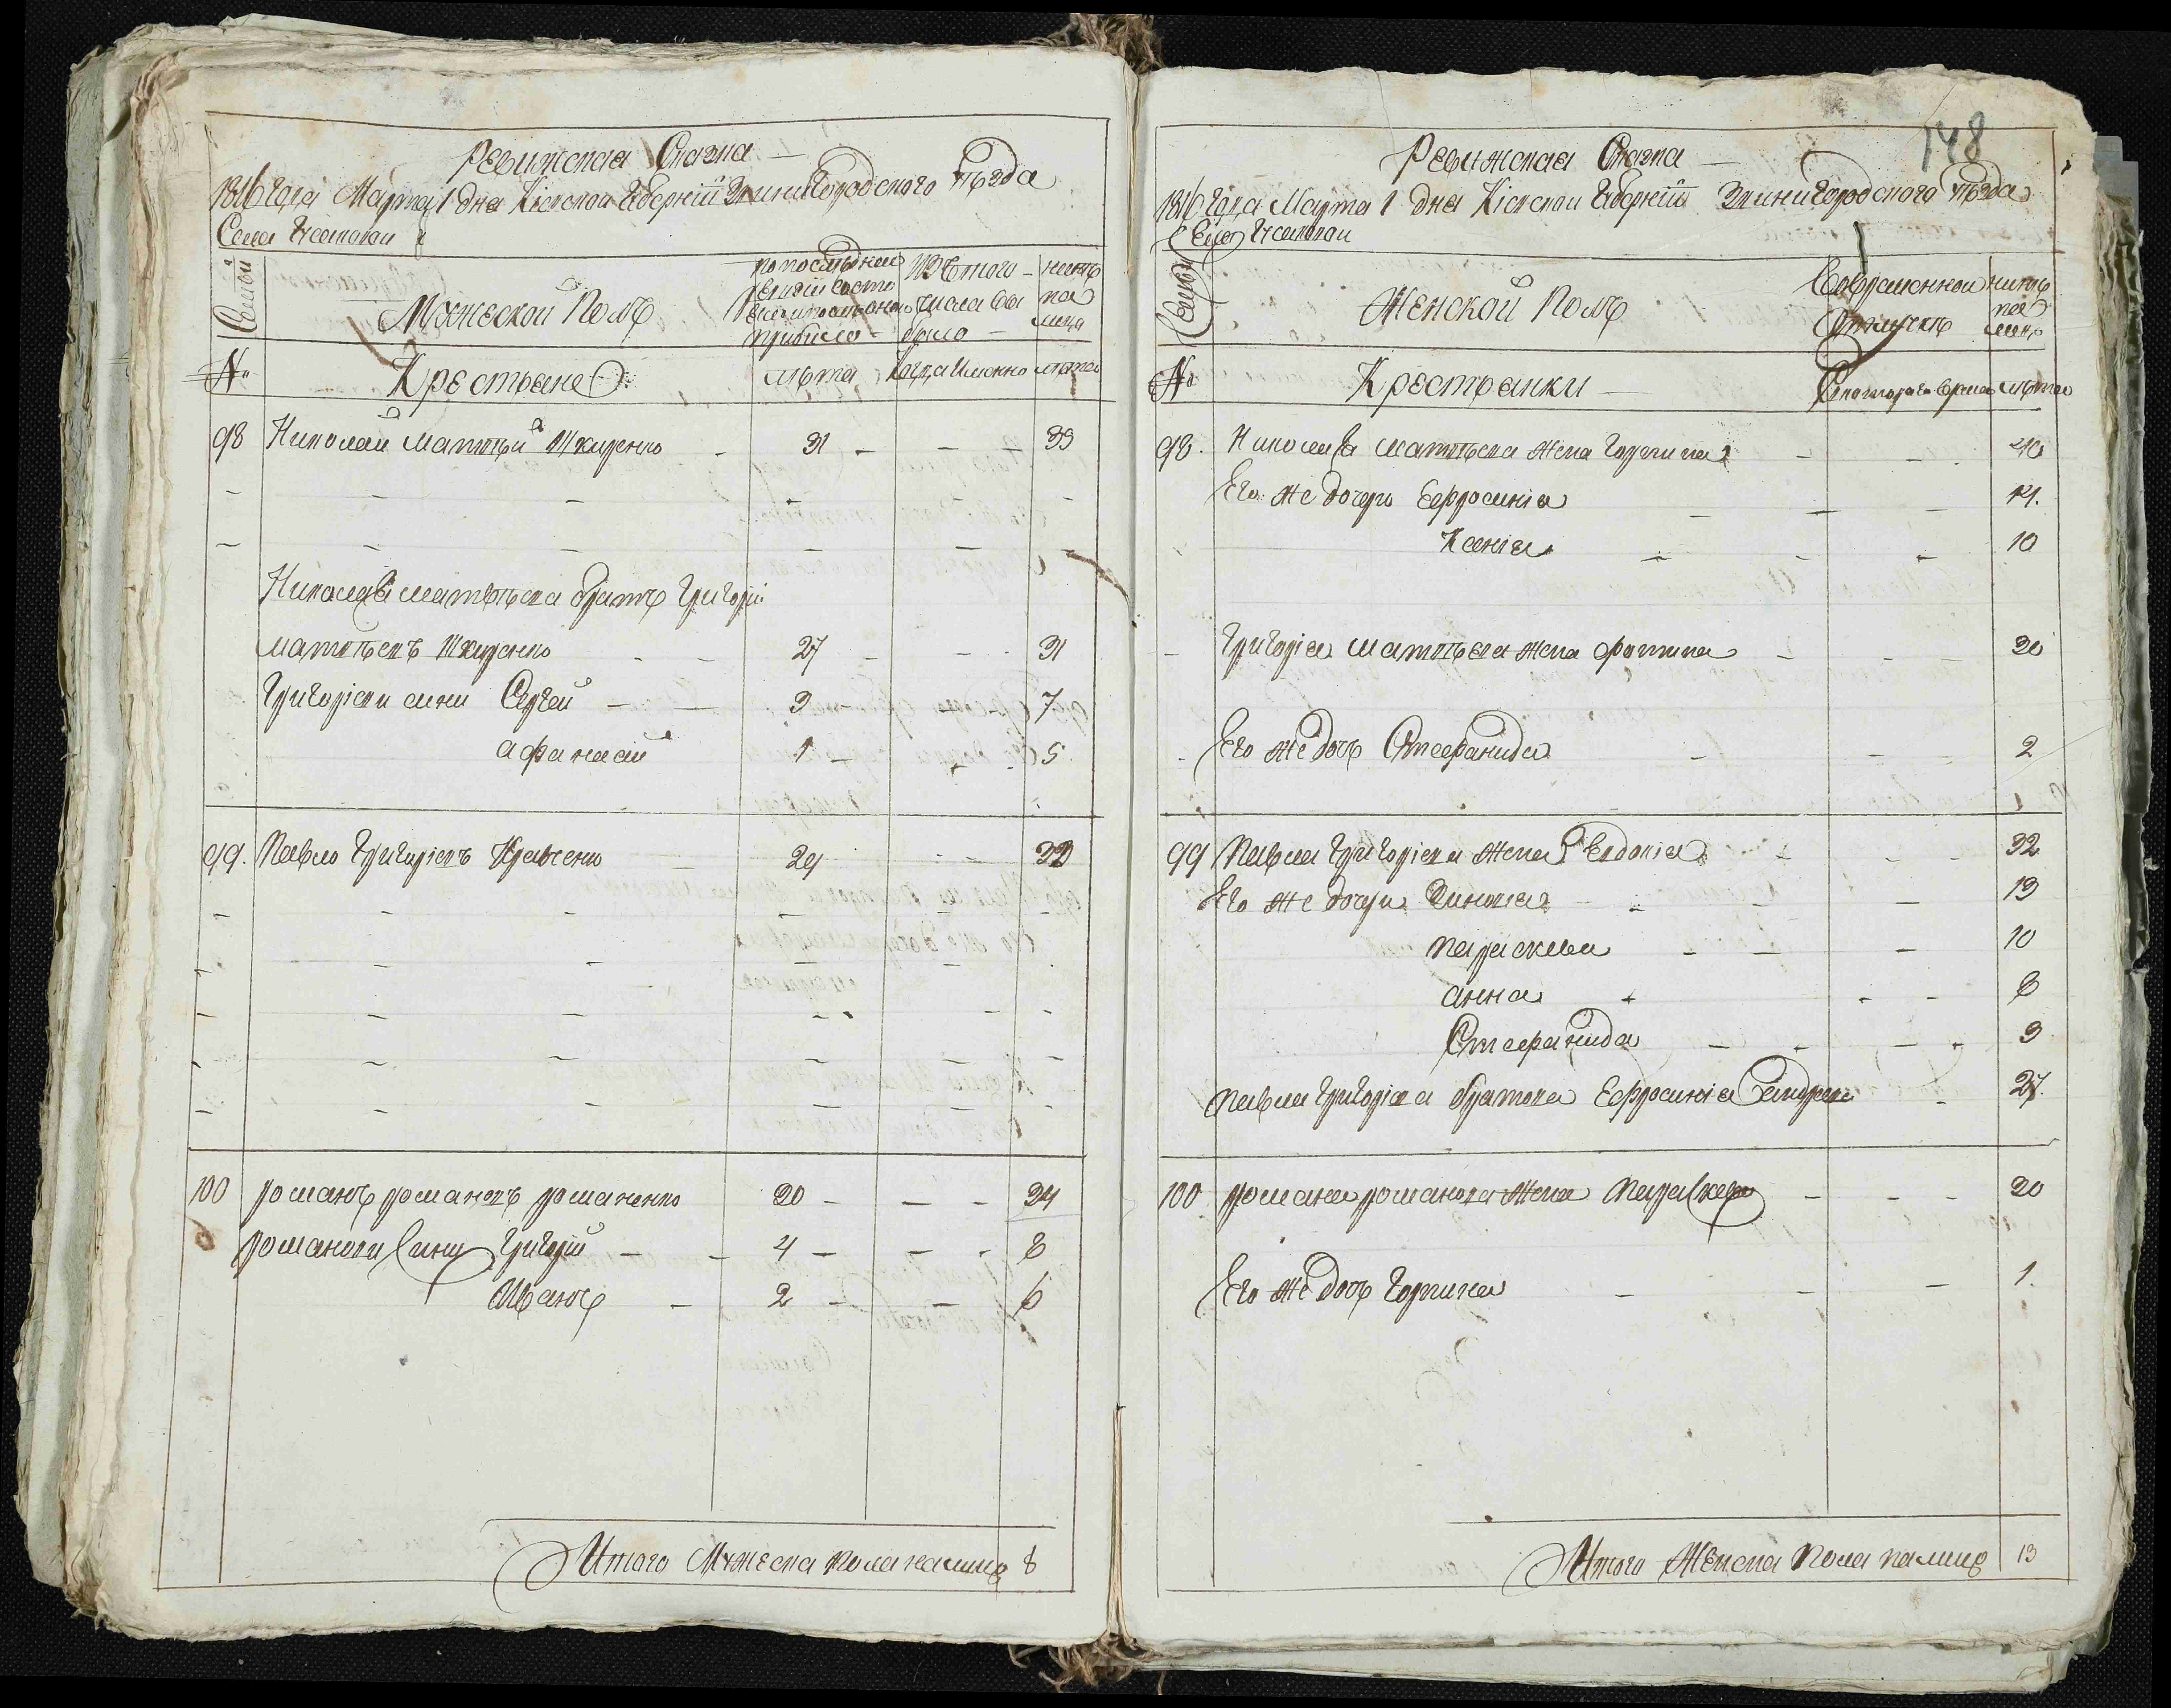 Ревижская Сказка
1816 года Марта 1 дня Кіевской Губерніи Звинигородского Повѣта
Села
Семьи
Мужеской Полъ
по последней ревизіи состо
прибыло
Изъ того числа вы было
ныне на лицо
№
Крестьяне
лѣта
Когда Именно
лѣта
98 Николай Матвѣй Шкуренко 31 35
Николая Матвѣева братъ Григорій
Матвѣевъ Шкуренко 27 31
Григоріевы сини Сергей 3 7
Афанасій 1 5
99. Павло Григоріевъ Кравченко 29 33
100 Романъ Романовъ Романенко 20 24
Романовы Сины Григорій 4 8
Иванъ 2 6
Итого Мужеска пола налицо 8
148
Ревижская Сказка
1816 года Марта 1 дня Кіевской Губерніи Звинигородского Повѣта
Села
Семьи
Женской Полъ
Во временной Отлучкѣ
ныне на лицо
№
Крестьянки
С котораго время
лѣта
98. Николая Матвѣева жена Горпина 40
Его же дочери Ефросинія 14.
Ксенія 10
Григорія Матвѣева жена Фотина 30
Его же дочь Стефанида 2
99 Павла Григоріева жена Евдокія 32
Его же дочери 13
Параскева 10
Анна 6
Стефанида 3
Павла Григоріева братова Ефросинія 27.
100 Романа Романова жена Параскева 20
Его же дочь Горпина 1.
Итого Женска Пола налицо 13